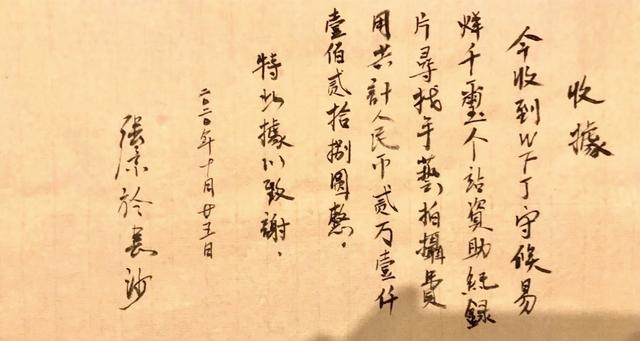 收據
今收到WFJ守候易
烊千璽个站資助紀錄
片尋找手藝拍攝費
用共計人民币貳万壹仟
壹佰貳拾捌圓整。
特此據以致謝。
二〇二〇年十月廿五日
張景於長沙